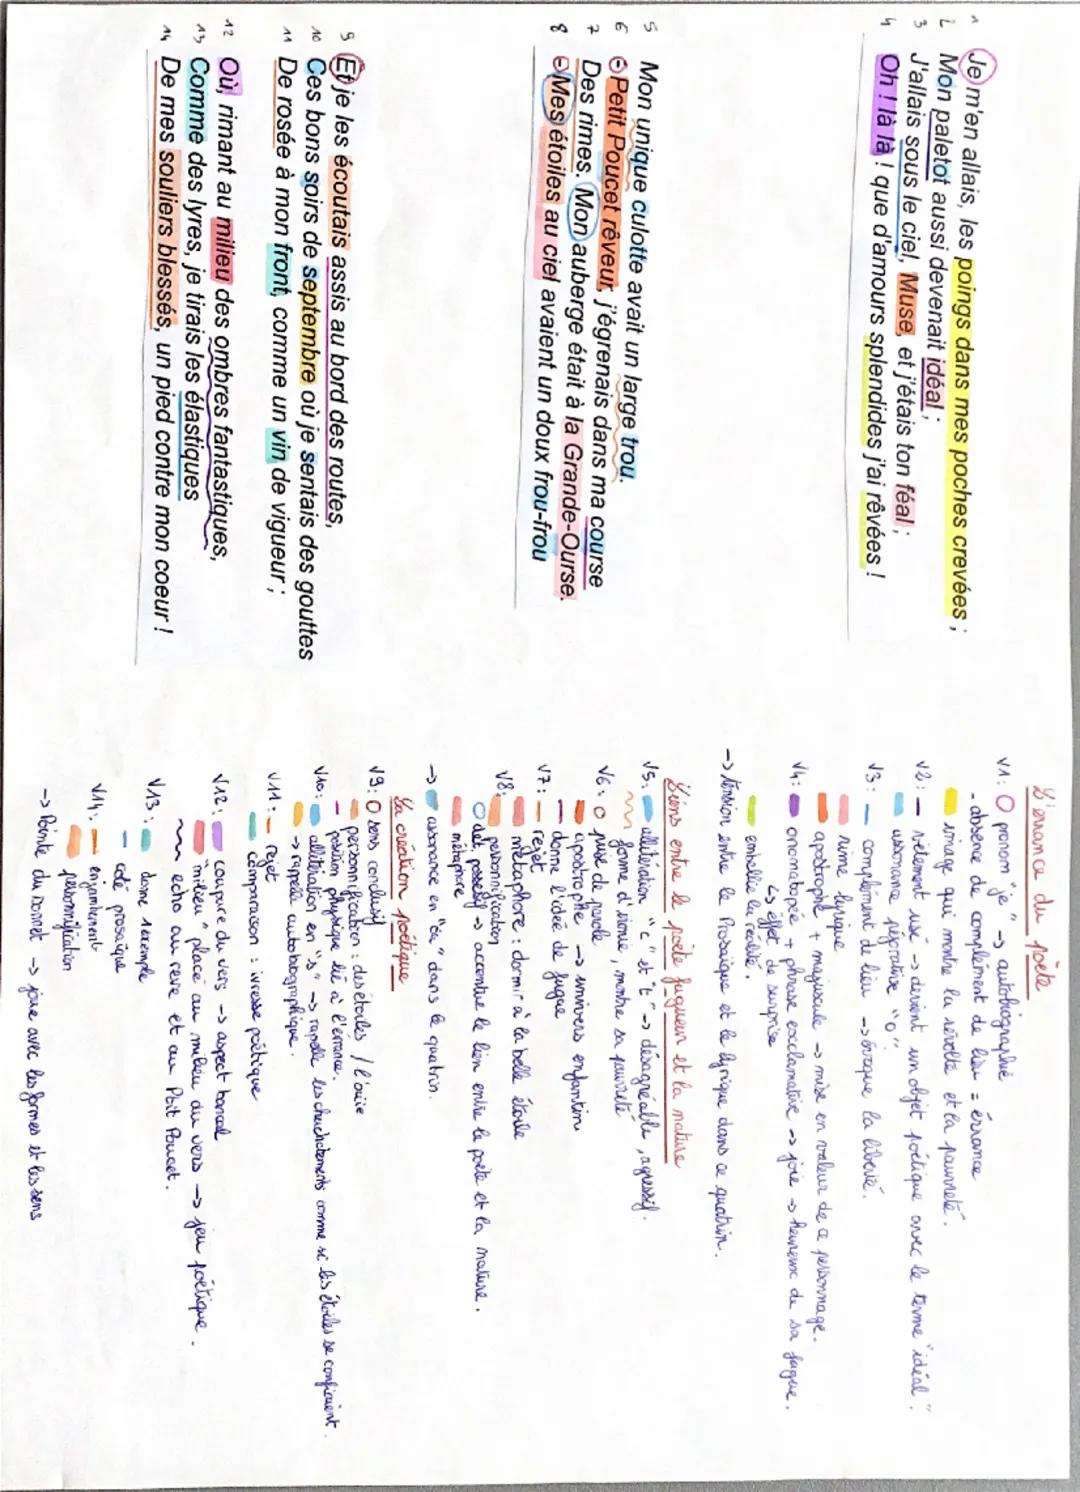 1 Je m'en allais, les poings dans mes poches crevées ;
2 Mon paletot aussi devenait idéal ;
3 J'allais sous le ciel, Muse, et j'étais ton féal ;
4 Oh ! là là ! que d'amours splendides j'ai rêvées !
5 Mon unique culotte avait un large trou.
6 Petit Poucet rêveur, j'égrenais dans ma course
7 Des rimes. Mon auberge était à la Grande-Ourse.
8 Mes étoiles au ciel avaient un doux frou-frou
9 Et je les écoutais assis au bord des routes,
10 Ces bons soirs de septembre où je sentais des gouttes
11 De rosée à mon front, comme un vin de vigueur ;
12 Où, rimant au milieu des ombres fantastiques,
13 Comme des lyres, je tirais les élastiques
14 De mes souliers blessés, un pied contre mon coeur !
L'errance du poète
V1: pronom "je" -> autobiographie
- absence de complément de lieu = érrance
image qui montre la révolte et la pauvreté.
V2: vêtement usé -> devient un objet poétique avec le terme "idéal".
assonance péjorative "o"
V3: complément de lieu -> évoque la liberté.
rime lyrique
apostrophe + majuscule -> mise en valeur de ce personnage.
V4: onomatopée + phrase exclamative -> joie -> heureux de sa fugue.
↳ effet de surprise
embellie la réalité.
-> tension entre le Prosaïque et le lyrique dans ce quatrain.
Liens entre le poète fugueur et la nature
V5: allitération "c" et "t" -> désagréable, agressif.
forme d'ironie, montre sa pauvreté
V6: pause de parole
apostrophe -> univers enfantin
donne l'idée de fugue
V7: rejet
métaphore : dormir à la belle étoile
V8: personnification
det. possessif -> accentue le lien entre le poète et la nature.
métaphore
-> assonance en "ou" dans le quatrain.
La création poétique
V9: sens conclusif
personnification : des étoiles / l'ouïe
position physique lié à l'errance.
V10: allitération en "s" -> rappelle les chuchotements comme si les étoiles se confiaient.
-> rappelle autobiographique.
V11: rejet
comparaison : ivresse poétique
V12: coupure du vers -> aspect bancal
"milieu" placé au milieu du vers -> jeu poétique.
echo au reve et au Petit Poucet.
V13: donne 1 exemple
coté prosaïque
V14: enjambement
personnification
-> Pointe du sonnet -> joue avec les formes et les sens